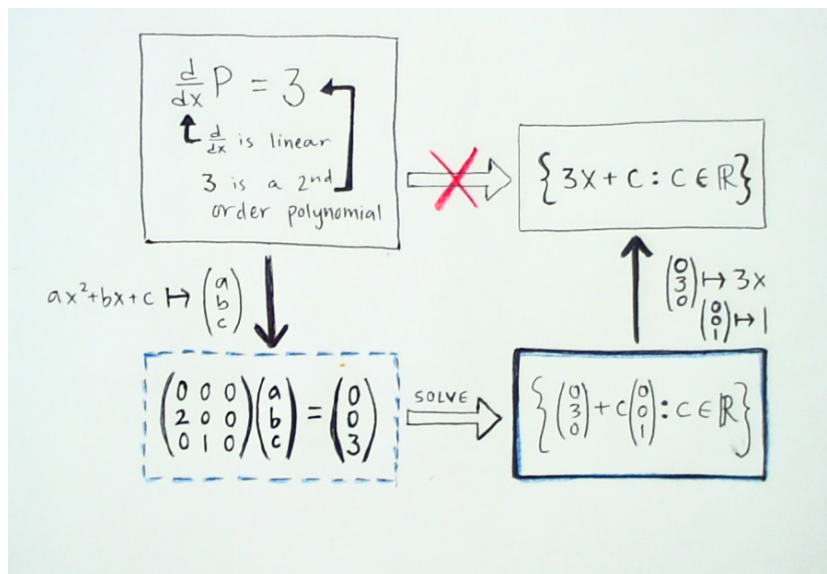 d/dx P = 3
d/dx is linear
3 is a 2nd
order polynomial
{3x + c : c ∈ ℝ}
ax²+bx+c ↦ (a b c)
(0 3 0) ↦ 3x
(0 0 1) ↦ 1
(0 0 0
2 0 0
0 1 0) (a b c) = (0 0 3)
SOLVE
{(0 3 0) + c(0 0 1) : c ∈ ℝ}